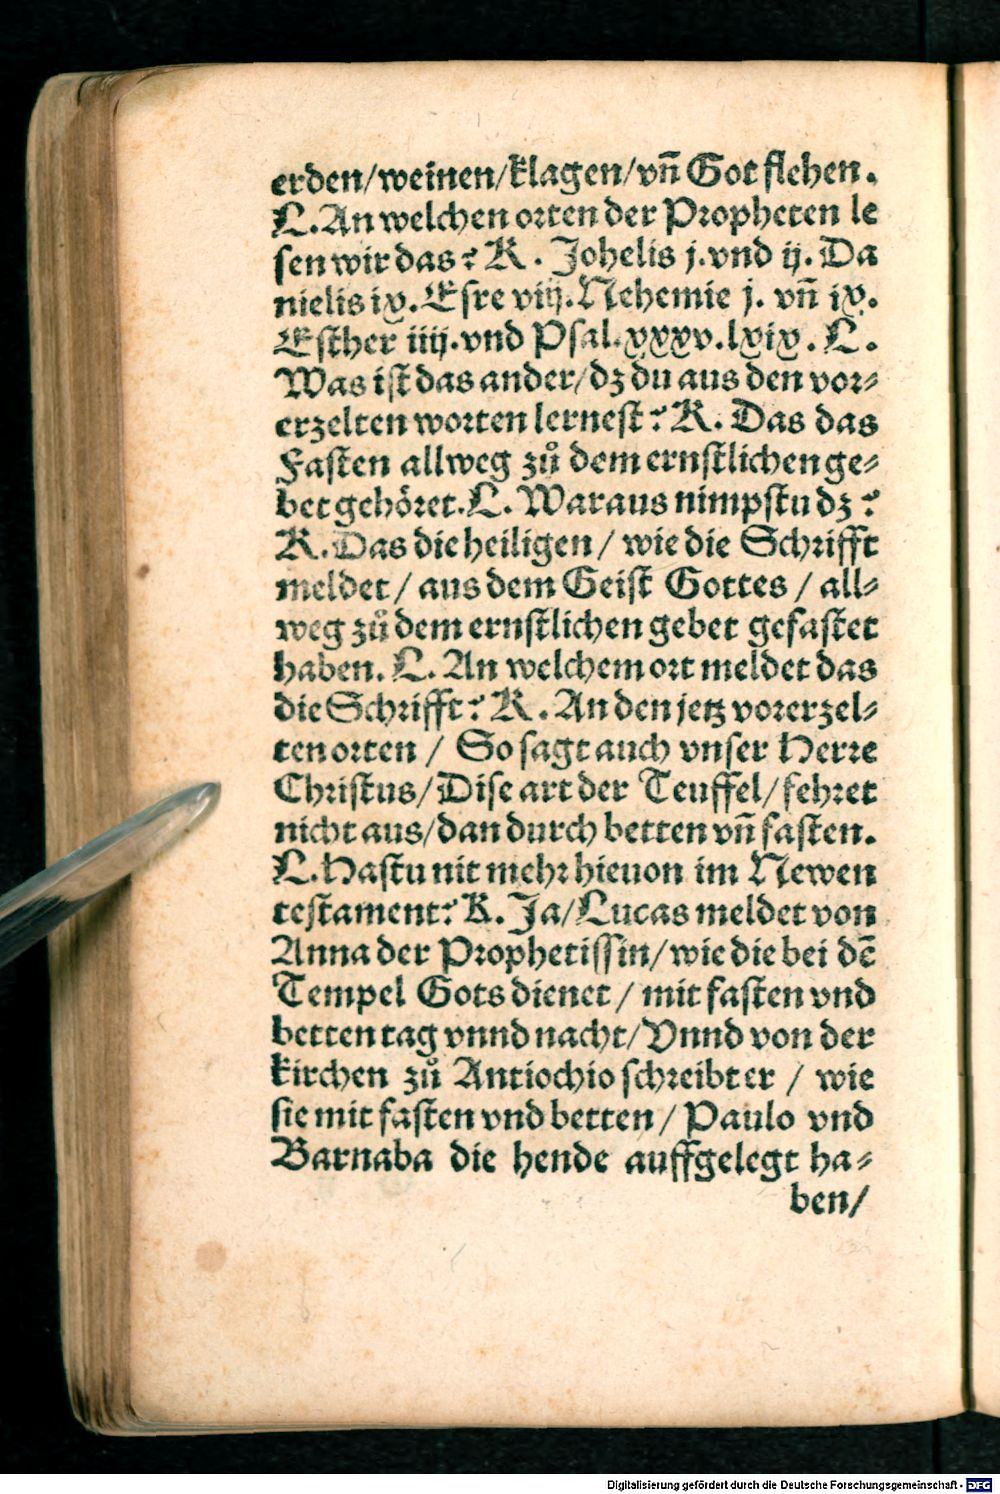 erden/weinen/klagen/vñ Got flehen.
L. An welchen orten der Propheten le
sen wir das? K. Johelis j. vnd ij. Da
nielis ix. Esre viij. Nehemie j. vñ ix.
Esther iiij. vnd Psal. xxxv. lxix. L.
Was ist das ander/dz du aus den vor⸗
erzelten worten lernest? K. Das das
Fasten allweg zů dem ernstlichen ge⸗
bet gehöret. L. Waraus nimpstu dz?
K. Das die heiligen / wie die Schrifft
meldet / aus dem Geist Gottes / all⸗
weg zů dem ernstlichen gebet gefastet
haben. L. An welchem ort meldet das
die Schrifft? K. An den jetz vorerzel⸗
ten orten / So sagt auch vnser Herre
Christus/Dise art der Teuffel/fehret
nicht aus/dan durch betten vñ fasten.
L. Hastu nit mehr hieuon im Newen
testament? K. Ja/Lucas meldet von
Anna der Prophetissin/wie die bei dē
Tempel Gots dienet / mit fasten vnd
betten tag vnnd nacht/Vnnd von der
kirchen zů Antiochio schreibt er / wie
sie mit fasten vnd betten / Paulo vnd
Barnaba die hende auffgelegt ha⸗
ben/
Digitalisierung gefördert durch die Deutsche Forschungsgemeinschaft - DFG